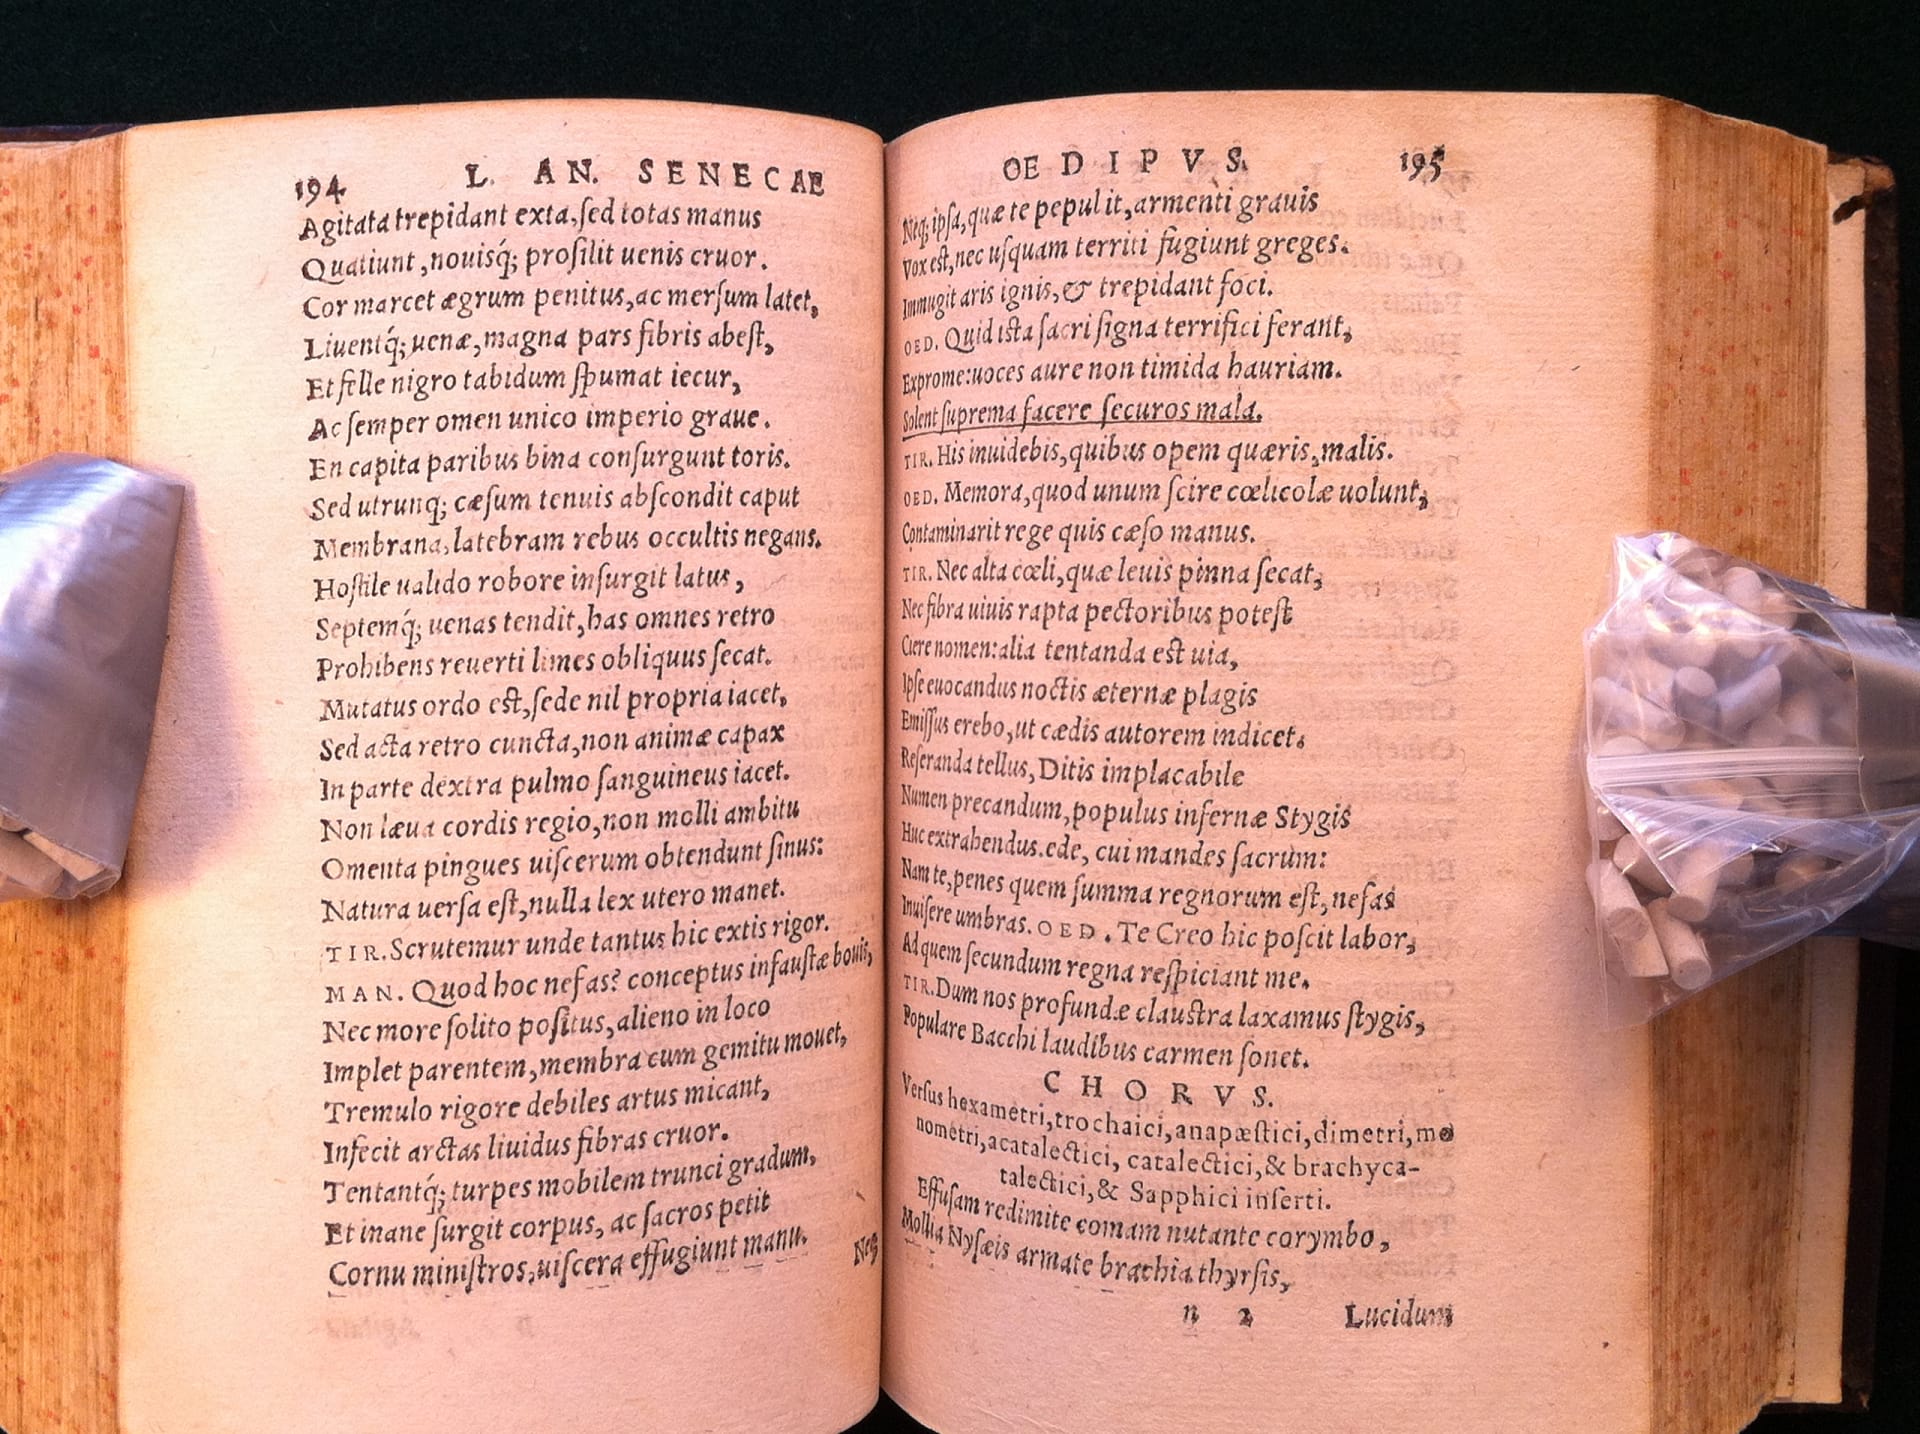 194 L. AN. SENECAE
Agitata trepidant exta, ſed totas manus
Quatiunt, nouisq́; proſilit uenis cruor.
Cor marcet ægrum penitus, ac merſum latet,
Liuentq́; uenæ, magna pars fibris abeſt,
Et felle nigro tabidum ſpumat iecur,
Ac ſemper omen unico imperio graue.
En capita paribus bina conſurgunt toris.
Sed utrunq; cæſum tenuis abſcondit caput
Membrana, latebram rebus occultis negans.
Hoſtile ualido robore inſurgit latus,
Septemq́; uenas tendit, has omnes retro
Prohibens reuerti limes obliquus ſecat.
Mutatus ordo eſt, ſede nil propria iacet,
Sed acta retro cuncta, non animæ capax
In parte dextra pulmo ſanguineus iacet.
Non læua cordis regio, non molli ambitu
Omenta pingues uiſcerum obtendunt ſinus:
Natura uerſa eſt, nulla lex utero manet.
TIR. Scrutemur unde tantus hic extis rigor.
MAN. Quod hoc nefas? conceptus infauſtæ bouis,
Nec more ſolito poſitus, alieno in loco
Implet parentem, membra cum gemitu mouet,
Tremulo rigore debiles artus micant,
Infecit arctas liuidus fibras cruor.
Tentantq́; turpes mobilem trunci gradum,
Et inane ſurgit corpus, ac ſacros petit
Cornu miniſtros, uiſcera effugiunt manu.
Neq;
OEDIPVS. 195
Neq; ipſa, quæ te pepulit, armenti grauis
Vox eſt, nec uſquam territi fugiunt greges.
Immugit aris ignis, & trepidant foci.
OED. Quid iſta ſacri ſigna terrifici ferant,
Exprome: uoces aure non timida hauriam.
Solent ſuprema facere ſecuros mala.
TIR. His inuidebis, quibus opem quæris, malis.
OED. Memora, quod unum ſcire cœlicolæ uolunt,
Contaminarit rege quis cæſo manus.
TIR. Nec alta cœli, quæ leuis pinna ſecat,
Nec fibra uiuis rapta pectoribus poteſt
Ciere nomen: alia tentanda eſt uia,
Ipſe euocandus noctis æternæ plagis
Emiſſus erebo, ut cædis autorem indicet.
Reſeranda tellus, Ditis implacabile
Numen precandum, populus infernæ Stygis
Huc extrahendus. ede, cui mandes ſacrum:
Nam te, penes quem ſumma regnorum eſt, nefas
Inuiſere umbras. OED. Te Creo hic poſcit labor,
Ad quem ſecundum regna reſpiciant me.
TIR. Dum nos profundæ clauſtra laxamus ſtygis,
Populare Bacchi laudibus carmen ſonet.
CHORVS.
Verſus hexametri, trochaici, anapæſtici, dimetri, mo
nometri, acatalectici, catalectici, & brachyca-
talectici, & Sapphici inſerti.
Effuſam redimite comam nutante corymbo,
Mollia Nyſæis armate brachia thyrſis,
n 2 Lucidum